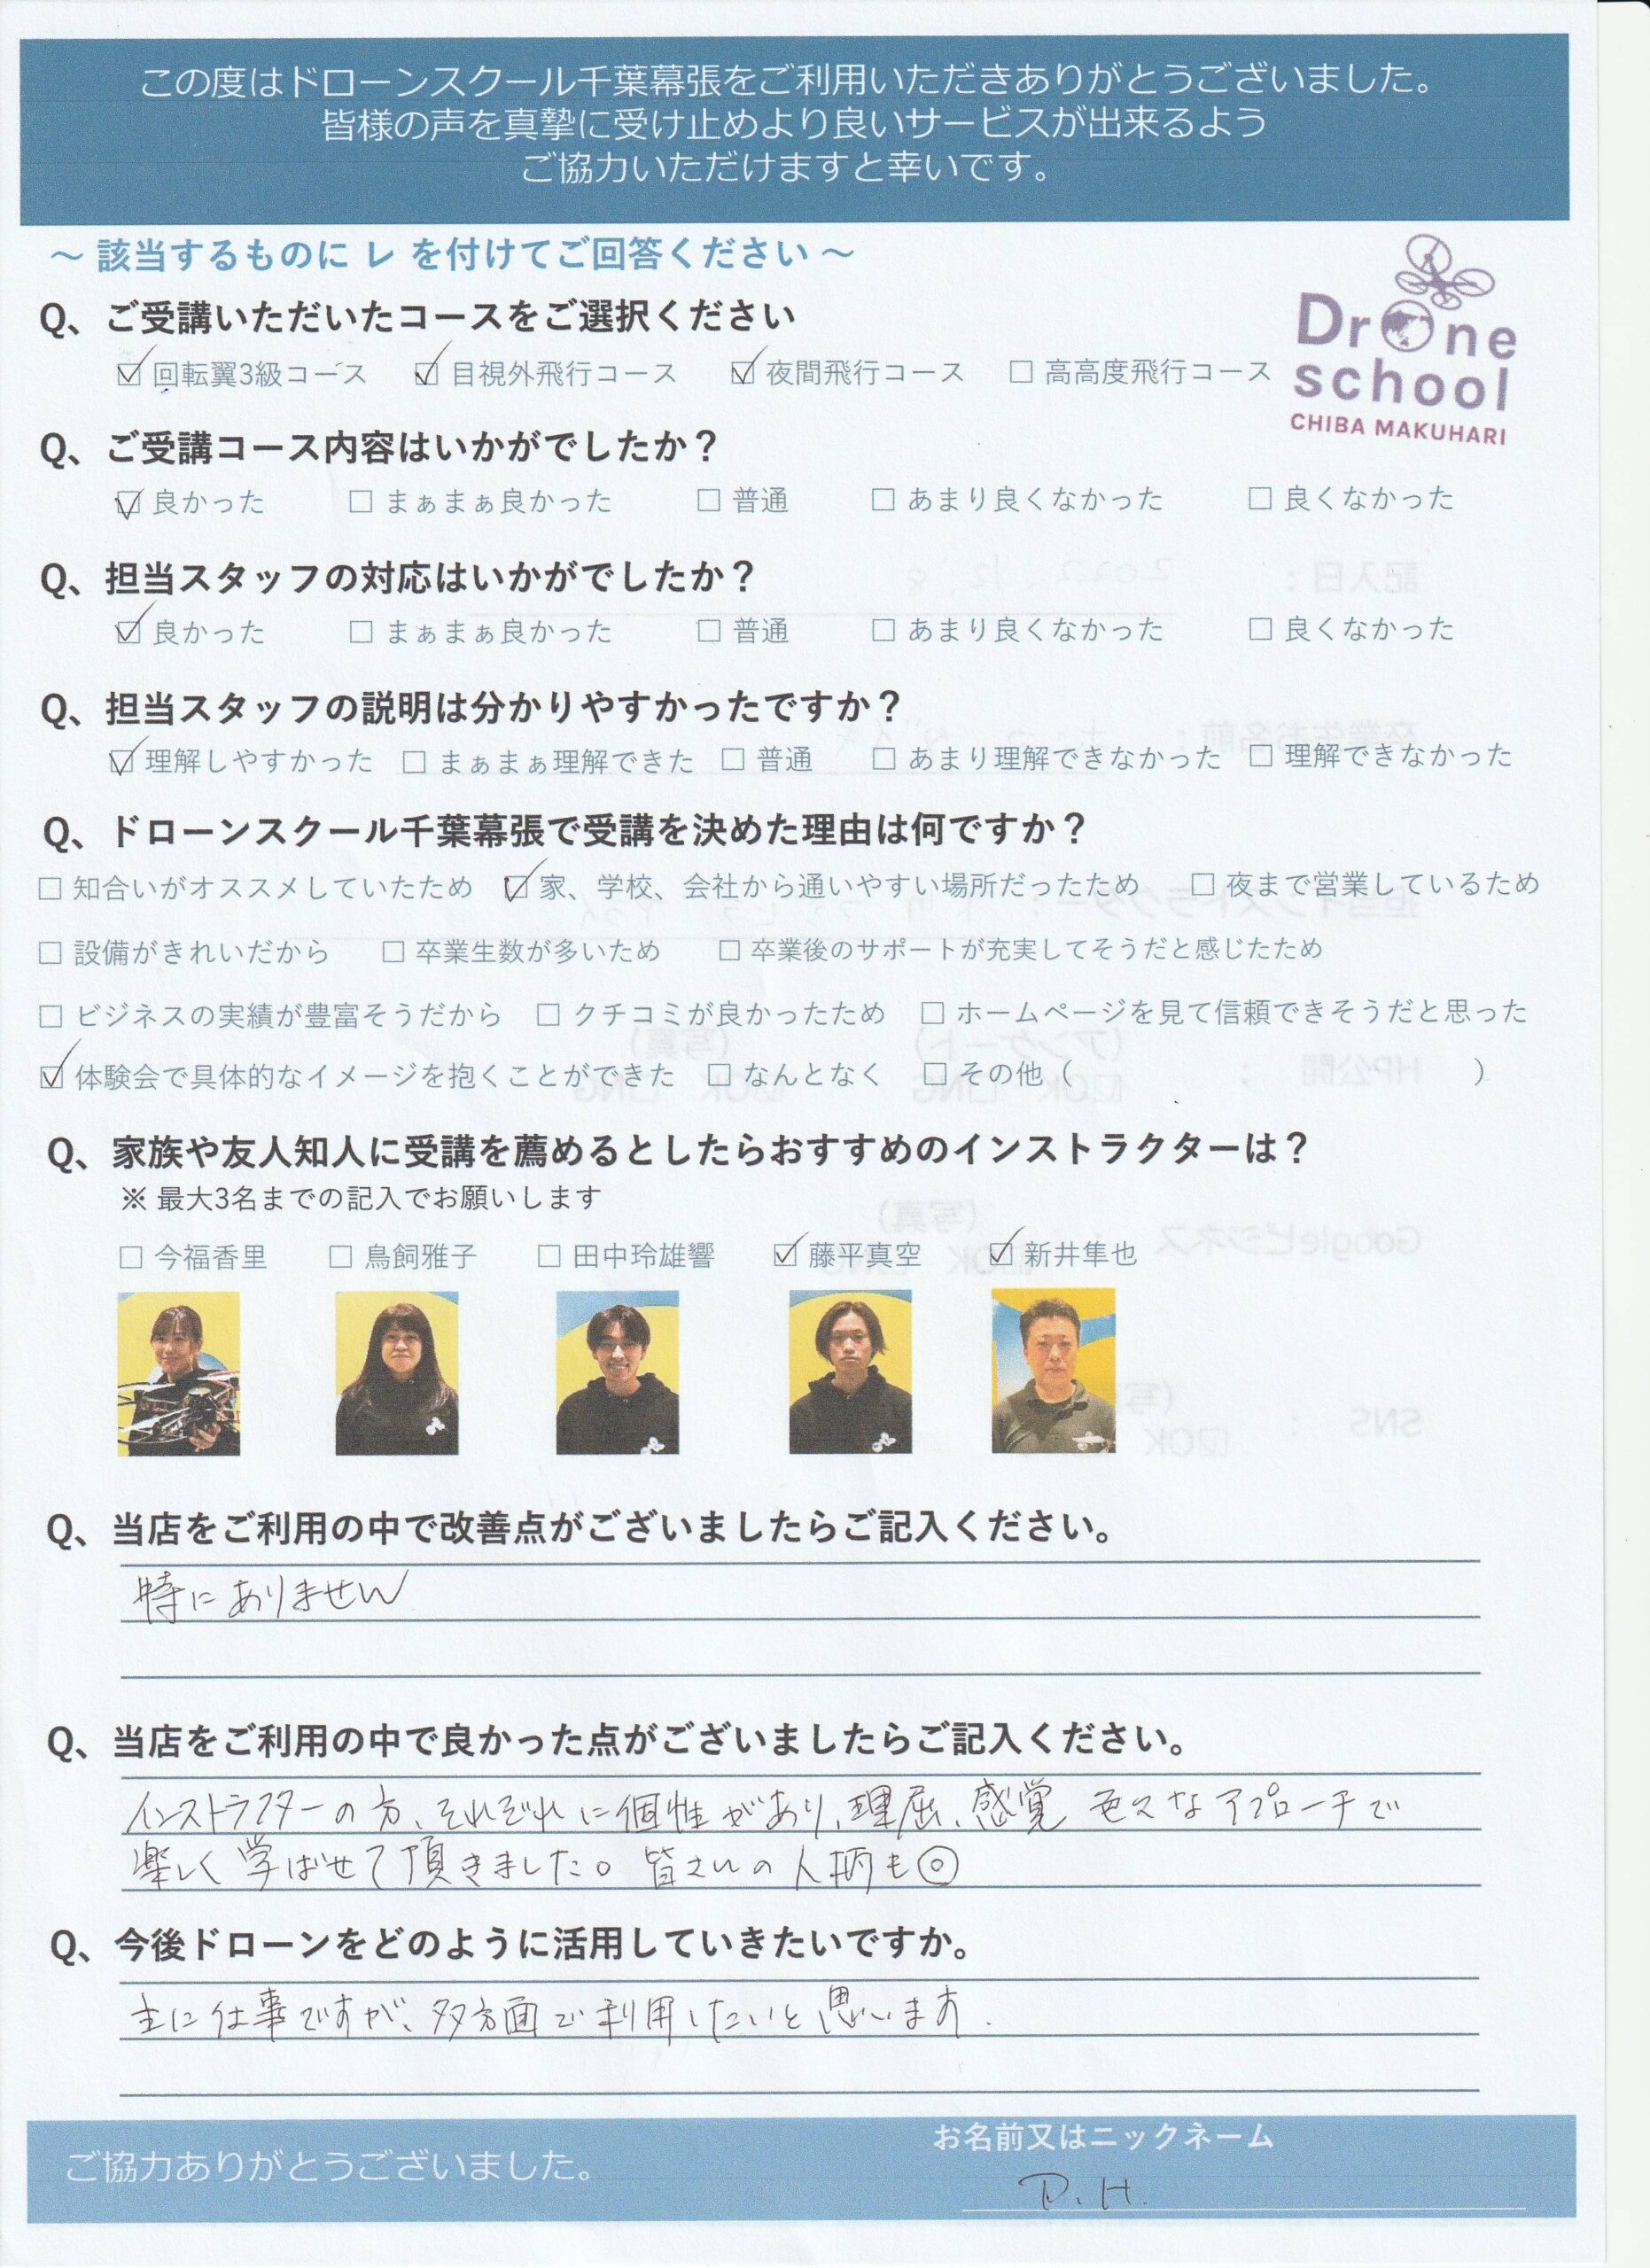 この度はドローンスクール千葉幕張をご利用いただきありがとうございました。
皆様の声を真摯に受け止めより良いサービスが出来るよう
ご協力いただけますと幸いです。
～ 該当するものに レ を付けてご回答ください ～
Drone
school
CHIBA MAKUHARI
Q、ご受講いただいたコースをご選択ください
☑ 回転翼3級コース ☑ 目視外飛行コース ☑ 夜間飛行コース □ 高高度飛行コース
Q、ご受講コース内容はいかがでしたか？
☑ 良かった □ まぁまぁ良かった □ 普通 □ あまり良くなかった □ 良くなかった
Q、担当スタッフの対応はいかがでしたか？
☑ 良かった □ まぁまぁ良かった □ 普通 □ あまり良くなかった □ 良くなかった
Q、担当スタッフの説明は分かりやすかったですか？
☑ 理解しやすかった □ まぁまぁ理解できた □ 普通 □ あまり理解できなかった □ 理解できなかった
Q、ドローンスクール千葉幕張で受講を決めた理由は何ですか？
□ 知合いがオススメしていたため ☑ 家、学校、会社から通いやすい場所だったため □ 夜まで営業しているため
□ 設備がきれいだから □ 卒業生数が多いため □ 卒業後のサポートが充実してそうだと感じたため
□ ビジネスの実績が豊富そうだから □ クチコミが良かったため □ ホームページを見て信頼できそうだと思った
☑ 体験会で具体的なイメージを抱くことができた □ なんとなく □ その他（ ）
Q、家族や友人知人に受講を薦めるとしたらおすすめのインストラクターは？
※ 最大3名までの記入でお願いします
□ 今福香里 □ 鳥飼雅子 □ 田中玲雄響 ☑ 藤平真空 ☑ 新井隼也
Q、当店をご利用の中で改善点がございましたらご記入ください。
特にありません
Q、当店をご利用の中で良かった点がございましたらご記入ください。
インストラクターの方、それぞれに個性があり、理屈、感覚 色々なアプローチで
楽しく学ばせて頂きました。皆さんの人柄も◎
Q、今後ドローンをどのように活用していきたいですか。
主に仕事ですが、多方面で利用したいと思います.
ご協力ありがとうございました。
お名前又はニックネーム
D.H.